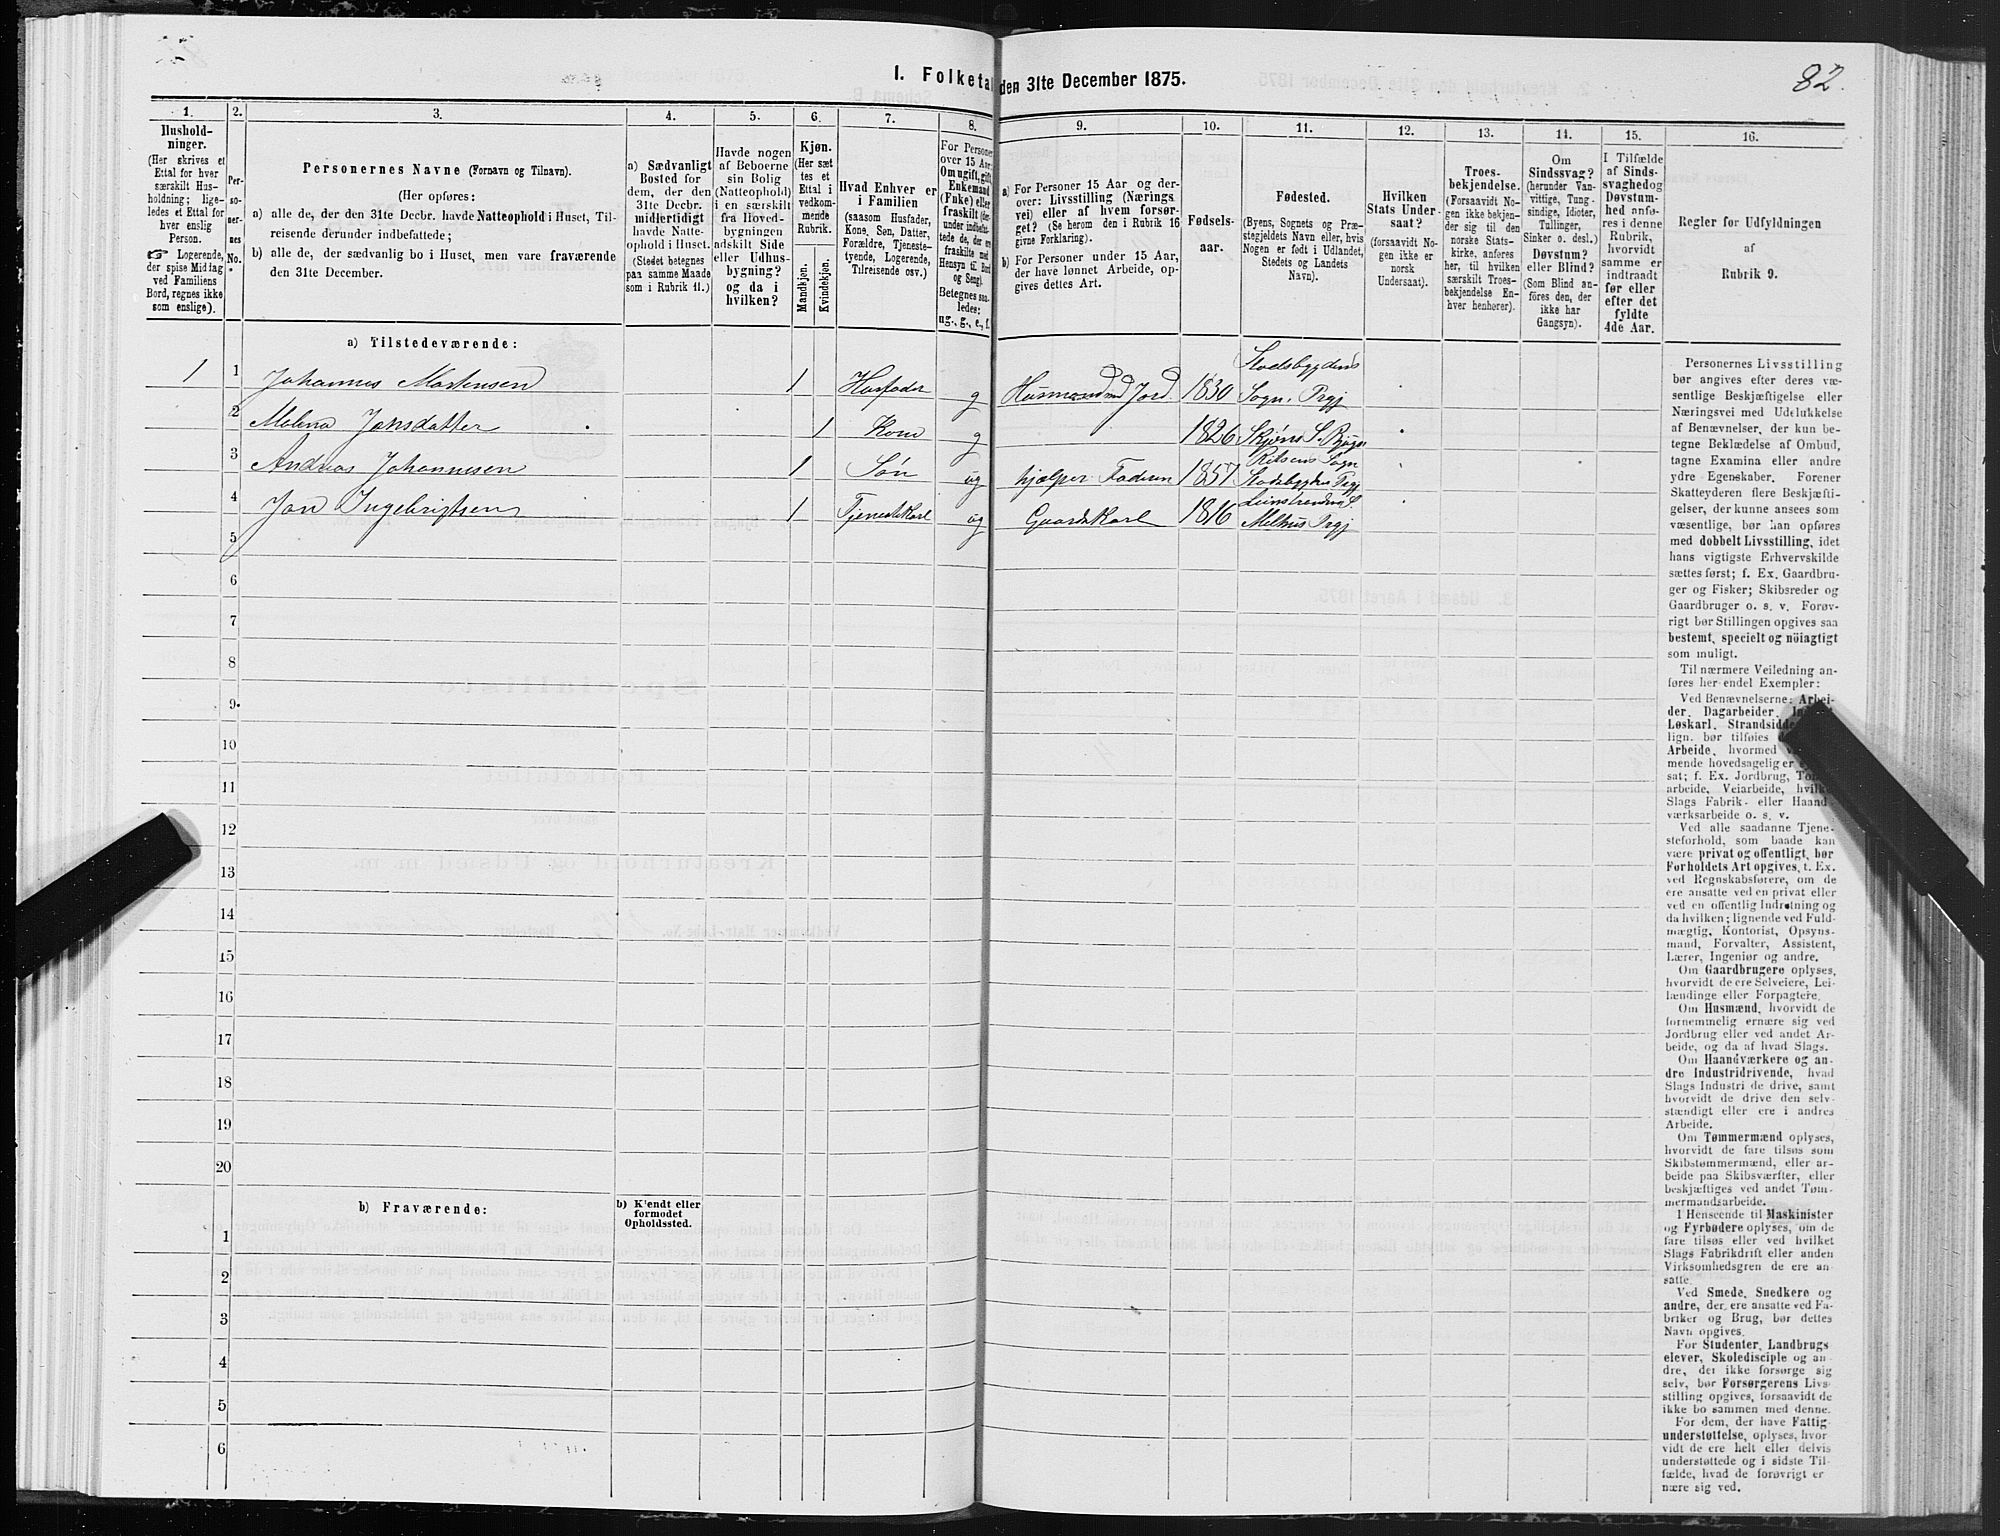 82.
I. Folketal den 31te December 1875.
1. 2. 3. 4. 5. 6. 7. 8. 9. 10. 11. 12. 13. 14. 15. 16.
Hushold-
ninger.
(Her skrives et
Ettal for hver
særskilt Hus-
holdning; lige-
ledes et Ettal for
hver enslig
Person.
☞ Logerende,
der spise Middag
ved Familiens
Bord, regnes ikke
som enslige).
Per-
so-
ner-
nes
No.
Personernes Navne (Fornavn og Tilnavn).
(Her opføres:
a) alle de, der den 31te Decbr. havde Natteophold i Huset, Til-
reisende derunder indbefattede;
b) alle de, der sædvanlig bo i Huset, men vare fraværende
den 31te December.
a) Sædvanligt
Bosted for
dem, der den
31te Decbr.
midlertidigt
havde Natte-
ophold i Huset.
(Stedet betegnes
paa samme Maade
som i Rubrik 11.)
Havde nogen
af Beboerne
sin Bolig
(Natteophold)
i en særskilt
fra Hoved-
bygningen
adskilt Side
eller Udhus-
bygning?
og da i
hvilken?
Kjøn.
(Her sæt-
tes et
Ettal i
vedkom-
mende
Rubrik.
Mandkjøn.
Kvindekjøn.
Hvad Enhver er
i Familien
(saasom Husfader,
Kone, Søn, Datter,
Forældre, Tjeneste-
tyende, Logerende,
Tilreisende osv.)
For Personer
over 15 Aar:
Om ugift, gift,
Enkemand
(Enke) eller
fraskilt (der-
under indbefat-
tede de, der ere
fraskilte med
Hensyn til Bord
og Seng).
Betegnes saa-
ledes:
ug., g., e., f.
a) For Personer 15 Aar og der-
over: Livsstilling (Nærings-
vei) eller af hvem forsør-
get? (Se herom den i Rubrik 16
givne Forklaring).
b) For Personer under 15 Aar,
der have lønnet Arbeide, op-
gives dettes Art.
Fødsels-
aar.
Fødested.
(Byens, Sognets og Præ-
stegjeldets Navn eller, hvis
Nogen er født i Udlandet,
Stedets og Landets
Navn).
Hvilken
Stats Under-
saat?
(forsaavidt No-
gen ikke er
norsk
Undersaat).
Troes-
bekjendelse.
(Forsaavidt No-
gen ikke bekjen-
der sig til den
norske Stats-
kirke, anføres
her, til hvilken
særskilt Troes-
bekjendelse En-
hver henhører).
Om
Sindssvag?
(herunder Van-
vittige, Tung-
sindige, Idioter,
Tullinger,
Sinker o. desl.)
Døvstum?
eller Blind?
(Som Blind an-
føres den, der
ikke har
Gangsyn).
I Tilfælde
af Sinds-
svaghed og
Døvstum-
hed anfø-
res i denne
Rubrik,
hvorvidt
samme er
indtraadt
før eller
efter det
fyldte
4de Aar.
Regler for Udfyldningen
af
Rubrik 9.
a) Tilstedeværende:
1 1 Johannes Mortensen 1 Husfader g Husmand med Jord. 1830 Stadsbygdens Sogn. Prgj
2 Melena Jonsdatter 1 Kone g 1826 Skjøns S.
3 Andreas Johannesen 1 Søn ug hjælper Faderen 1857 Ritsens Sogn Stadsbygdens Prgj
4 Jon Ingebrigtsen 1 Tjenestekarl ug Gaardskarl 1816 Leinstrandens S. Melhus Prgj
5
6
7
8
9
10
11
12
13
14
15
16
17
18
19
20
b) Fraværende:
b) Kjendt eller
formodet
Opholdssted.
1
2
3
4
5
6
Personernes Livsstilling
bør angives efter deres væ-
sentlige Beskjæftigelse eller
Næringsvei med Udelukkelse
af Benævnelser, der kun be-
tegne Beklædelse af Ombud,
tagne Examina eller andre
ydre Egenskaber. Forener
Skatteyderen flere Beskjæfti-
gelser, der kunne ansees som
væsentlige, bør han opføres
med dobbelt Livsstilling, idet
hans vigtigste Erhvervskilde
sættes først; f. Ex. Gaardbru-
ger og Fisker; Skibsreder og
Gaardbruger o. s. v. Forøv-
rigt bør Stillingen opgives saa
bestemt, specielt og nöiagtigt
som muligt.
Til nærmere Veiledning an-
føres her endel Exempler:
Ved Benævnelserne: Arbei-
der, Dagarbeider,
Løskarl, Strandsidder
lign. bør tilføies
Arbeide, hvormed
mende hovedsagelig er
sat; f. Ex. Jordbrug,
arbeide, Veiarbeide, hvilke
Slags Fabrik- eller Haand-
værksarbeide o. s. v.
Ved alle saadanne Tjene-
steforhold, som baade kan
være privat og offentligt, bør
Forholdets Art opgives, t. Ex.
ved Regnskabsførere, om de
ere ansatte ved en privat eller
ved en offentlig Indretning og
da hvilken; lignende ved Fuld-
mægtig, Kontorist, Opsyns-
mand, Forvalter, Assistent,
Lærer, Ingeniør og andre.
Om Gaardbrugere oplyses,
hvorvidt de ere Selveiere, Lei-
lændinge eller Forpagtere.
Om Husmænd, hvorvidt de
fornemmelig ernære sig ved
Jordbrug eller ved andet Ar-
beide, og da af hvad Slags.
Om Haandværkere og an-
dre Industridrivende, hvad
Slags Industri de drive, samt
hvorvidt de drive den selv-
stændigt eller ere i andres
Arbeide.
Om Tømmermænd oplyses,
hvorvidt de fare tilsøs som
Skibstømmermænd, eller ar-
beide paa Skibsværfter, eller
beskjæftiges ved andet Tøm-
mermandsarbeide.
I Henseende til Maskinister
og Fyrbødere oplyses, om de
fare tilsøs eller ved hvilket
Slags Fabrikdrift eller anden
Virksomhedsgren de ere an-
satte.
Ved Smede, Snedkere og
andre, der ere ansatte ved Fa-
briker og Brug, bør dettes
Navn opgives.
For Studenter, Landbrugs-
elever, Skoledisciple og an-
dre, der ikke forsørge sig
selv, bør Forsørgerens Livs-
stilling opgives, forsaavidt de
ikke bo sammen med denne.
For dem, der have Fattig-
understøttelse, oplyses, hvor-
vidt de ere helt eller delvis
understøttede og i sidste Til-
fælde, hvad de forøvrigt er-
nære sig ved.